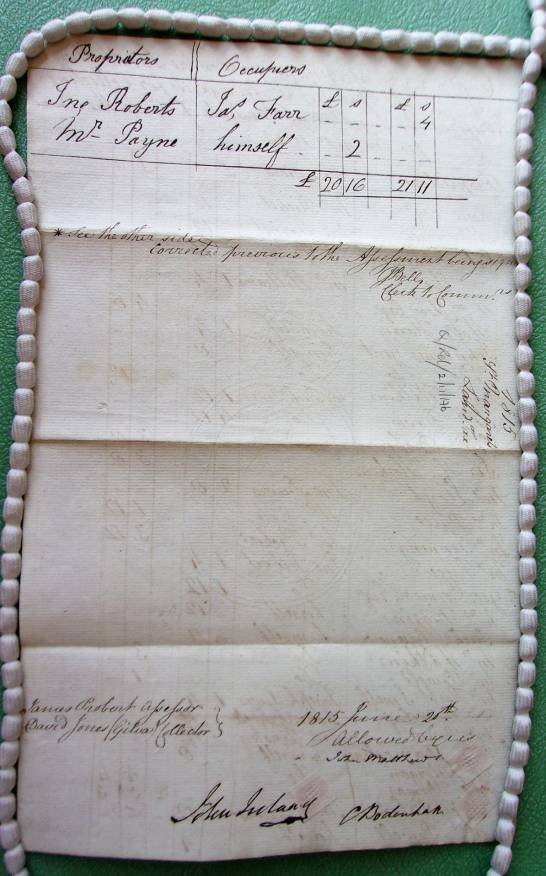 Proprietors Occupiers
£ s £ s
Jno Roberts Jas Farr - - - - 4
Mr Payne himself - 2 - -
£ 20 16 21 11
* See the other side
Corrected previous to the Assessment being
JBell
Clerk to Commrs
1815
St Margarets
Land
James Robert Assessor
David Jones Collector }
1815 June 20th
Allowed by us
John Matthews
John Ireland
C Bodenham